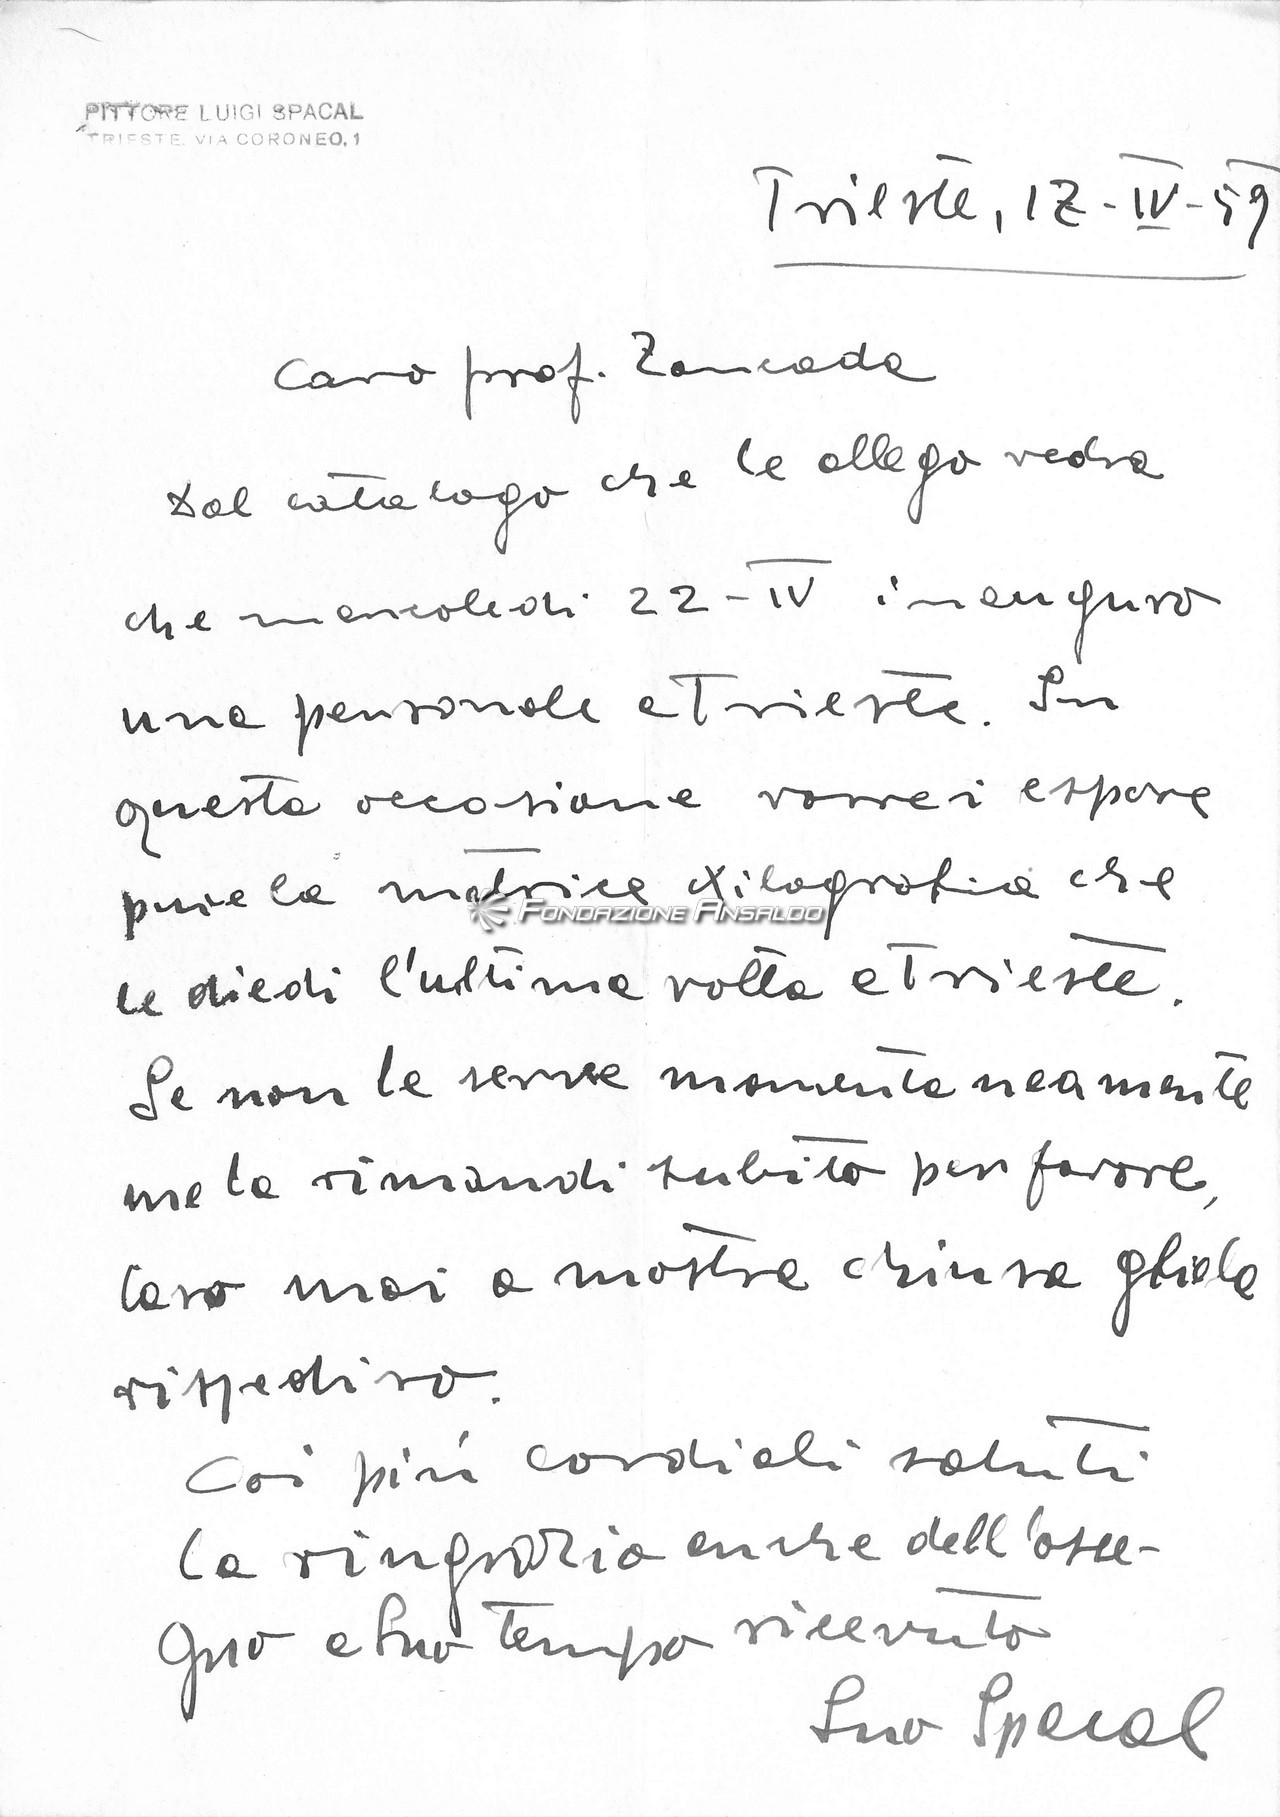 PITTORE LUIGI SPACAL
TRIESTE, VIA CORONEO, 1
Trieste, 12-IV-59
Caro prof. Zancada
Dal catalogo che le allego vedra
che mercoledi 22-IV inauguro
una personale a Trieste. In
questa occasione vorrei espore
pure la matrice xilografia che
le diedi l'ultima volta a Trieste.
Se non le serve momentaneamente
me la rimandi subito per favore,
caro mai a mostra chiusa gliela
rispediro.
Coi piú cordiali saluti
la ringrazio anche dell'asse-
gno a suo tempo ricevuto
Suo Spacal
FONDAZIONE ANSALDO